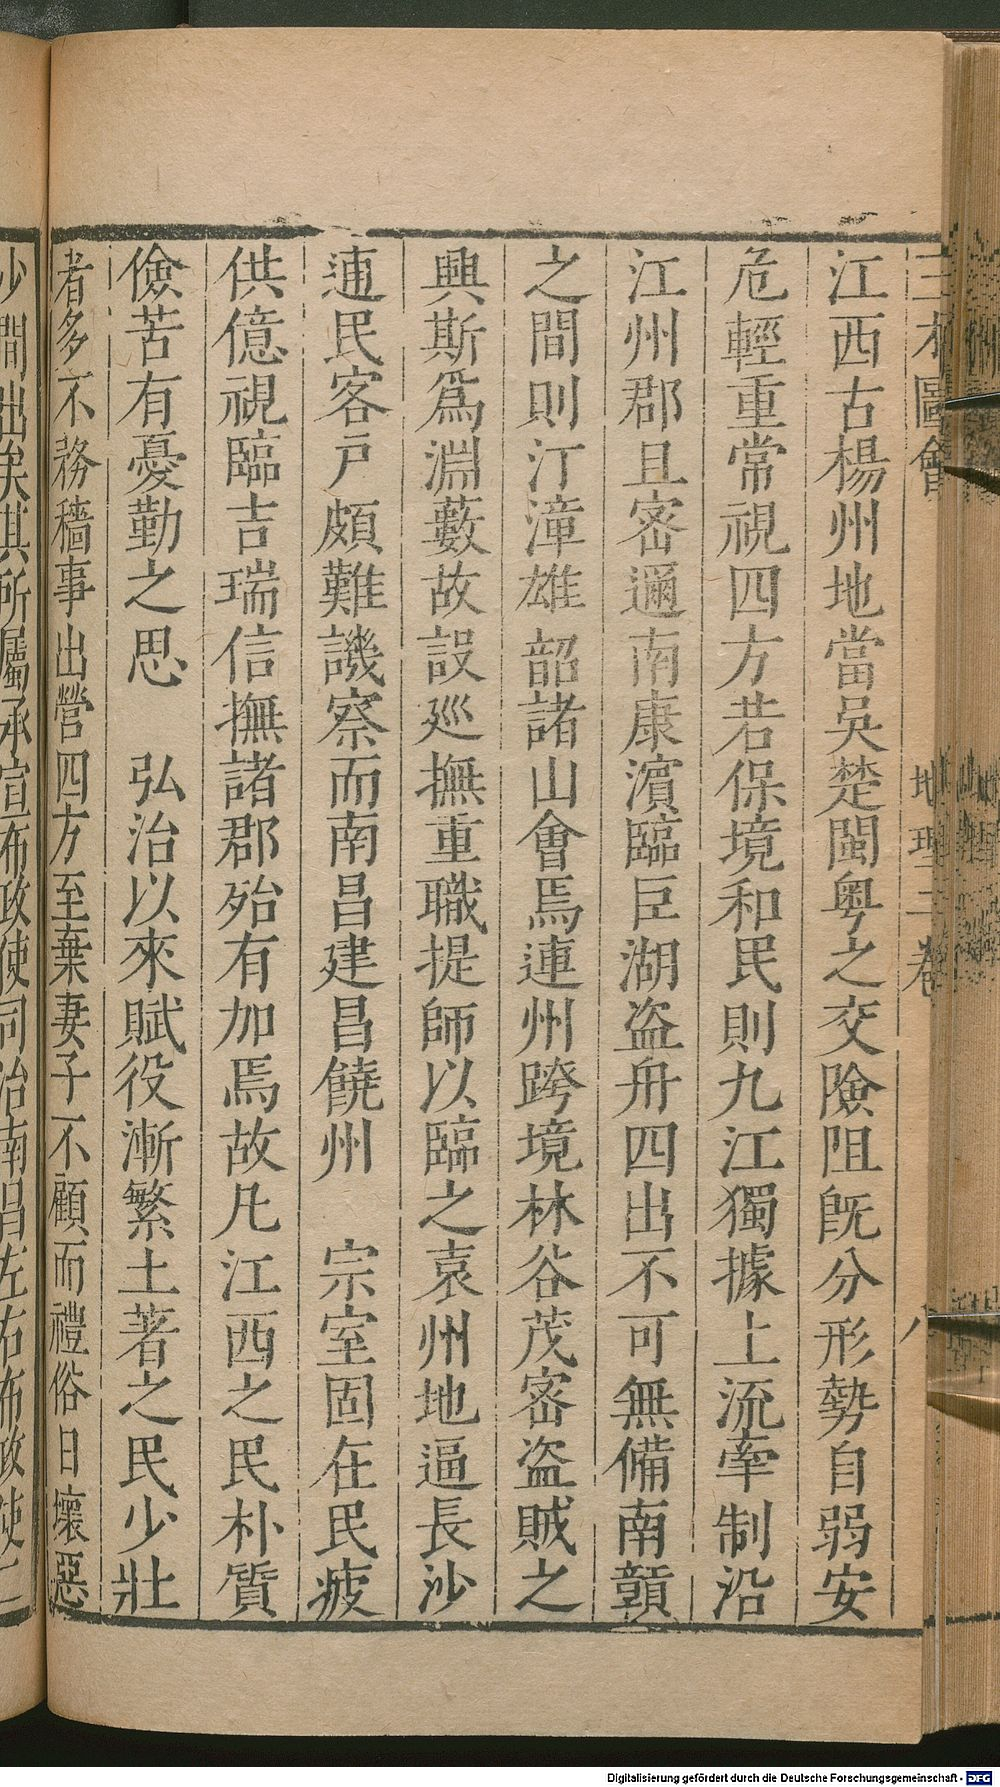 三才圖會 地理三卷 八
江西古楊州地當吳楚閩粤之交險阻旣分形勢自弱安
危輕重常視四方若保境和民則九江獨據上流牽制沿
江州郡且密邇南康濱臨巨湖盜舟四出不可無備南贛
之間則汀漳雄韶諸山會焉連州跨境林谷茂密盜賊之
興斯爲淵藪故設廵撫重職提師以臨之袁州地逼長沙
逋民客戶頗難譏察而南昌建昌饒州 宗室固在民疲
供億視臨吉瑞信撫諸郡殆有加焉故凡江西之民朴質
儉苦有憂勤之思 弘治以來賦役漸繁土著之民少壯
者多不務穡事出營四方至棄妻子不顧而禮俗日壞惡
少間出矣其所屬承宣布政使司治南昌左右布政使二
Digitalisierung gefördert durch die Deutsche Forschungsgemeinschaft - DFG